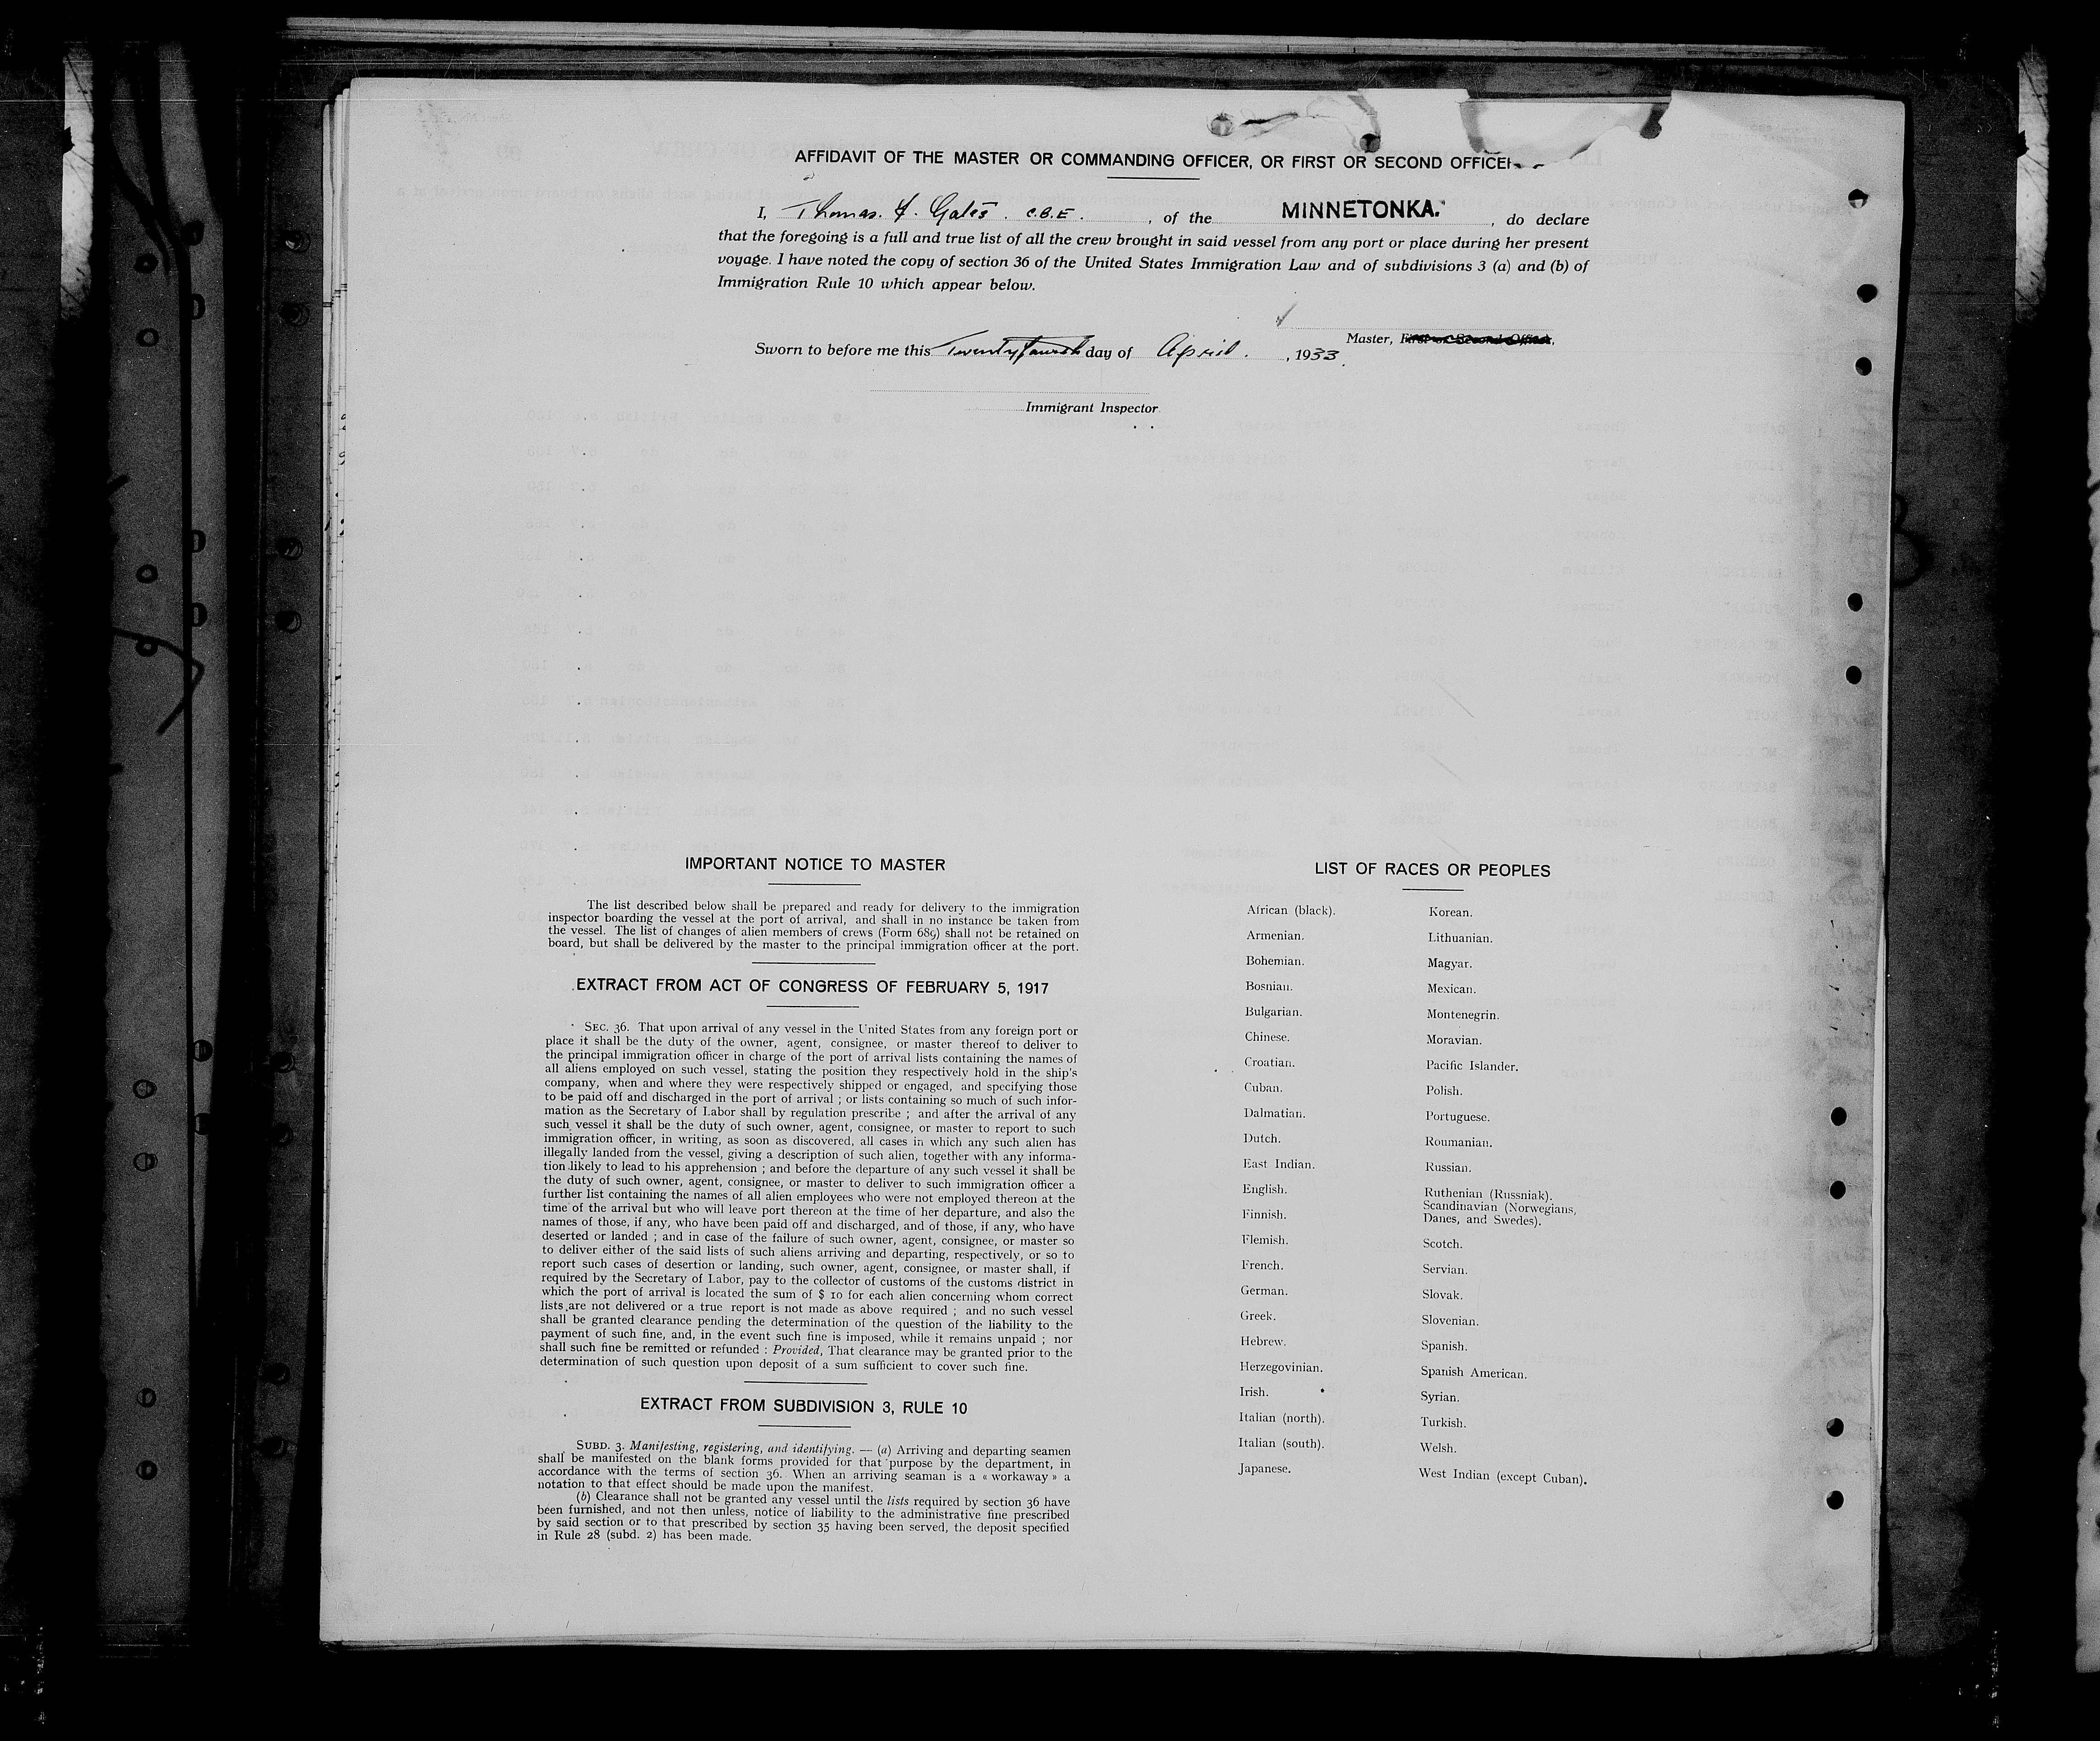 AFFIDAVIT OF THE MASTER OR COMMANDING OFFICER, OR FIRST OR SECOND OFFICER
I, Thomas. F. Gates. C.B.E., of the MINNETONKA., do declare
that the foregoing is a full and true list of all the crew brought in said vessel from any port or place during her present
voyage. I have noted the copy of section 36 of the United States Immigration Law and of subdivisions 3 (a) and (b) of
Immigration Rule 10 which appear below.
Master, First or Second Officer,
Sworn to before me this Twentyfourth day of April., 1933.
Immigrant Inspector
IMPORTANT NOTICE TO MASTER
The list described below shall be prepared and ready for delivery to the immigration
inspector boarding the vessel at the port of arrival, and shall in no instance be taken from
the vessel. The list of changes of alien members of crews (Form 689) shall not be retained on
board, but shall be delivered by the master to the principal immigration officer at the port.
EXTRACT FROM ACT OF CONGRESS OF FEBRUARY 5, 1917
SEC. 36. That upon arrival of any vessel in the United States from any foreign port or
place it shall be the duty of the owner, agent, consignee, or master thereof to deliver to
the principal immigration officer in charge of the port of arrival lists containing the names of
all aliens employed on such vessel, stating the position they respectively hold in the ship's
company, when and where they were respectively shipped or engaged, and specifying those
to be paid off and discharged in the port of arrival ; or lists containing so much of such infor-
mation as the Secretary of Labor shall by regulation prescribe ; and after the arrival of any
such vessel it shall be the duty of such owner, agent, consignee, or master to report to such
immigration officer, in writing, as soon as discovered, all cases in which any such alien has
illegally landed from the vessel, giving a description of such alien, together with any informa-
tion likely to lead to his apprehension ; and before the departure of any such vessel it shall be
the duty of such owner, agent, consignee, or master to deliver to such immigration officer a
further list containing the names of all alien employees who were not employed thereon at the
time of the arrival but who will leave port thereon at the time of her departure, and also the
names of those, if any, who have been paid off and discharged, and of those, if any, who have
deserted or landed ; and in case of the failure of such owner, agent, consignee, or master so
to deliver either of the said lists of such aliens arriving and departing, respectively, or so to
report such cases of desertion or landing, such owner, agent, consignee, or master shall, if
required by the Secretary of Labor, pay to the collector of customs of the customs district in
which the port of arrival is located the sum of $ 10 for each alien concerning whom correct
lists are not delivered or a true report is not made as above required ; and no such vessel
shall be granted clearance pending the determination of the question of the liability to the
payment of such fine, and, in the event such fine is imposed, while it remains unpaid ; nor
shall such fine be remitted or refunded : Provided, That clearance may be granted prior to the
determination of such question upon deposit of a sum sufficient to cover such fine.
EXTRACT FROM SUBDIVISION 3, RULE 10
SUBD. 3. Manifesting, registering, and identifying. — (a) Arriving and departing seamen
shall be manifested on the blank forms provided for that purpose by the department, in
accordance with the terms of section 36. When an arriving seaman is a « workaway » a
notation to that effect should be made upon the manifest.
(b) Clearance shall not be granted any vessel until the lists required by section 36 have
been furnished, and not then unless, notice of liability to the administrative fine prescribed
by said section or to that prescribed by section 35 having been served, the deposit specified
in Rule 28 (subd. 2) has been made.
LIST OF RACES OR PEOPLES
African (black).
Armenian.
Bohemian.
Bosnian.
Bulgarian.
Chinese.
Croatian.
Cuban.
Dalmatian.
Dutch.
East Indian.
English.
Finnish.
Flemish.
French.
German.
Greek.
Hebrew.
Herzegovinian.
Irish.
Italian (north).
Italian (south).
Japanese.
Korean.
Lithuanian.
Magyar.
Mexican.
Montenegrin.
Moravian.
Pacific Islander.
Polish.
Portuguese.
Roumanian.
Russian.
Ruthenian (Russniak).
Scandinavian (Norwegians,
Danes, and Swedes).
Scotch.
Servian.
Slovak.
Slovenian.
Spanish.
Spanish American.
Syrian.
Turkish.
Welsh.
West Indian (except Cuban).